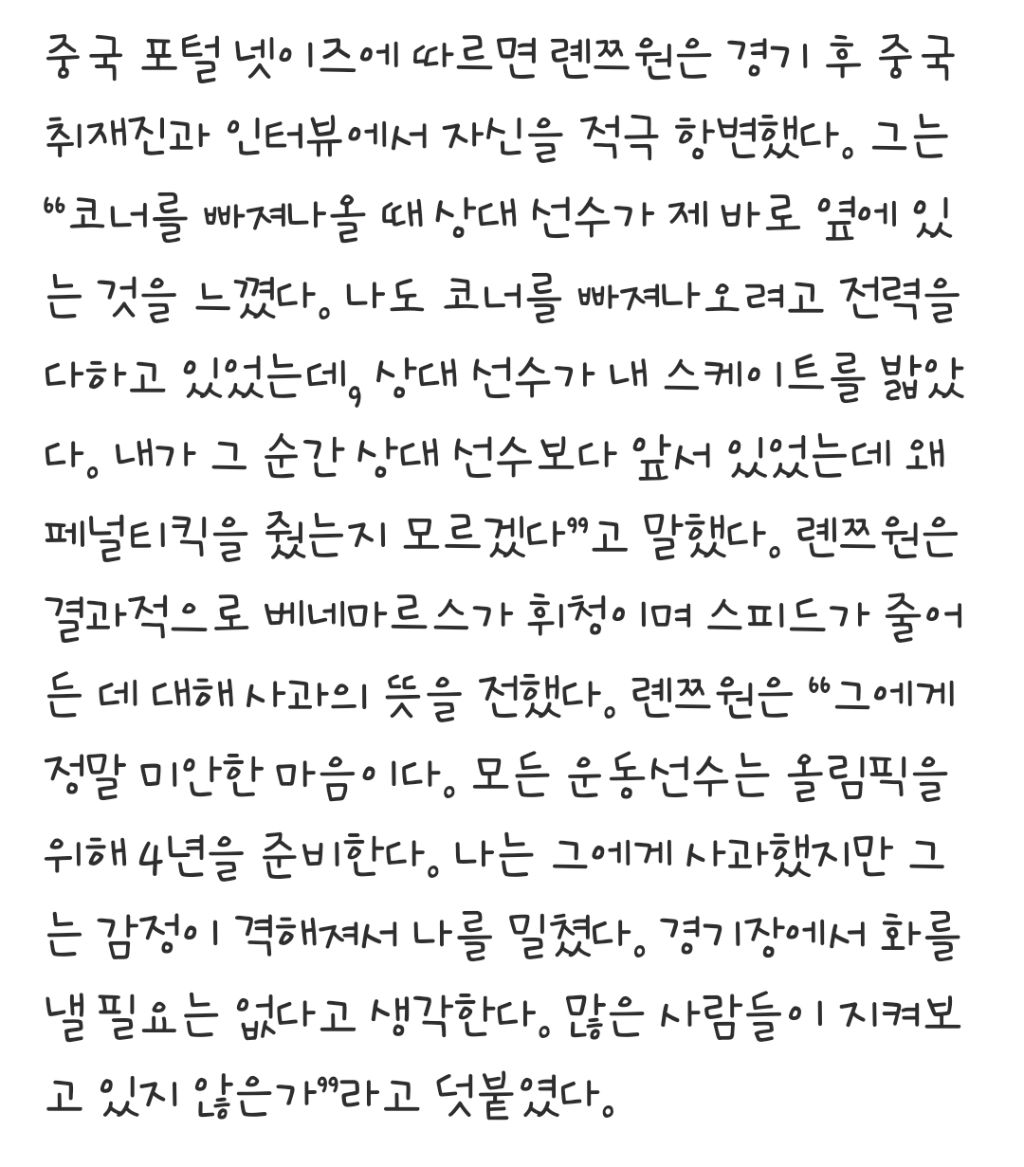 중국 포털 넷이즈에 따르면 롄쯔원은 경기 후 중국
취재진과 인터뷰에서 자신을 적극 항변했다. 그는
“코너를 빠져나올 때 상대 선수가 제 바로 옆에 있
는 것을 느꼈다. 나도 코너를 빠져나오려고 전력을
다하고 있었는데, 상대 선수가 내 스케이트를 밟았
다. 내가 그 순간 상대 선수보다 앞서 있었는데 왜
페널티킥을 줬는지 모르겠다”고 말했다. 롄쯔원은
결과적으로 베네마르스가 휘청이며 스피드가 줄어
든 데 대해 사과의 뜻을 전했다. 롄쯔원은 “그에게
정말 미안한 마음이다. 모든 운동선수는 올림픽을
위해 4년을 준비한다. 나는 그에게 사과했지만 그
는 감정이 격해져서 나를 밀쳤다. 경기장에서 화를
낼 필요는 없다고 생각한다. 많은 사람들이 지켜보
고 있지 않은가”라고 덧붙였다.